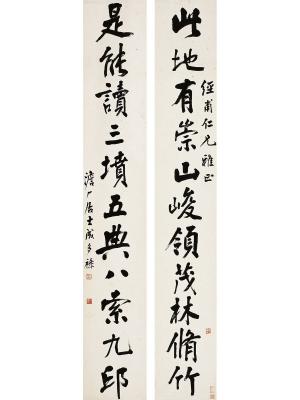 此地有崇山峻領茂林脩竹
經甫仁兄雅正
是能讀三墳五典八索九邱
澹厂居士成多祿